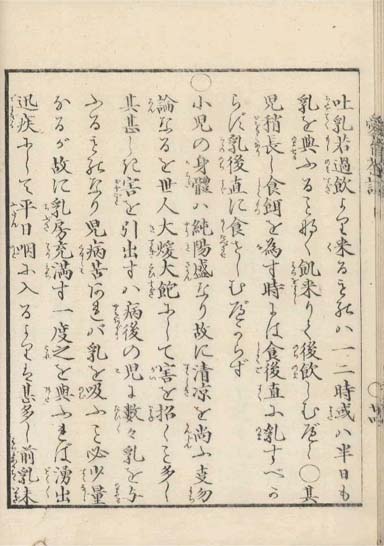 吐乳若過飲より来るものハ一二時或ハ半日も
乳を与ふることなく飢来りて後飲しむべし〇其
児稍長し食餌を為す時には食後直ニ乳すべか
らず乳後直に食せしむべからず
〇小児の身体ハ純陽盛なり故に清凉を尚ふ事勿
論なるを世人大煖大飽ニして害を招くこと多し
其甚しき害を引出すハ病後の児に数々乳を与
ふるものなり児病苦あれバ乳を吸ふこと必少量
なるが故に乳房充満す一度之を与ふれば湧出
迅疾ニして平日咽に入るよりも甚多し前乳未